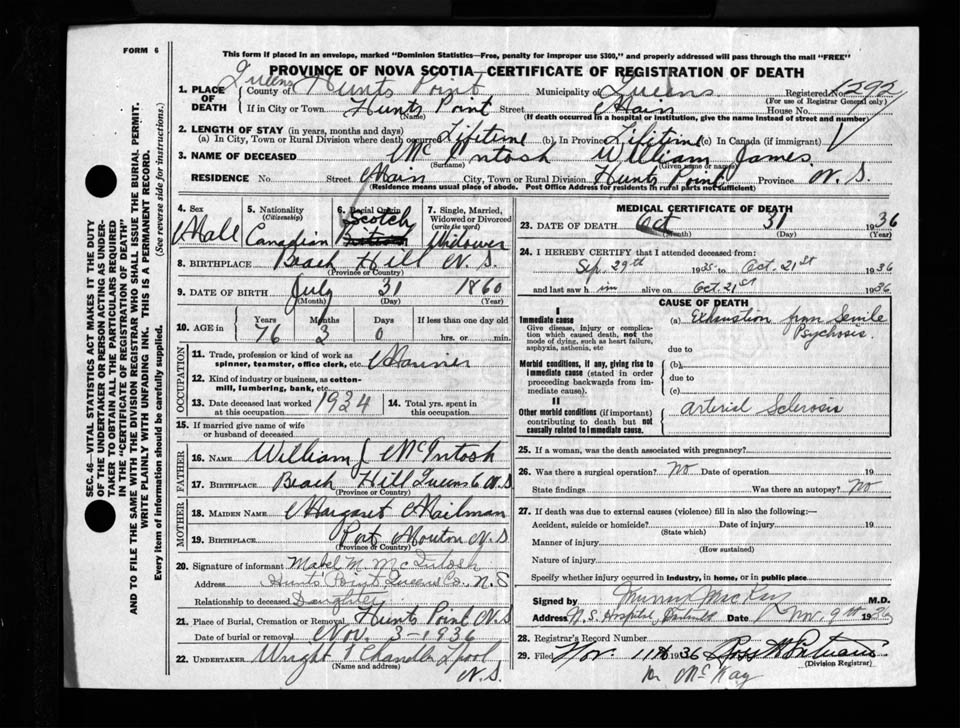 FORM 6
This form if placed in an envelope, marked "Dominion Statistics—Free, penalty for improper use $300," and properly addressed will pass through the mail "FREE"
PROVINCE OF NOVA SCOTIA—CERTIFICATE OF REGISTRATION OF DEATH
1. PLACE OF DEATH
Queens County of Hunts Point Municipality of Queens Registered No. 1592
(For use of Registrar General only)
If in City or Town Hunts Point Street Main House No.
(Name) (If death occurred in a hospital or institution, give the name instead of street and number)
2. LENGTH OF STAY (in years, months and days)
(a) In City, Town or Rural Division where death occurred Lifetime (b) In Province Lifetime (c) In Canada (if immigrant)
3. NAME OF DECEASED McIntosh William James
(Surname) (Given name or names)
RESIDENCE No. Street Main City, Town or Rural Division Hunts Point Province N. S.
(Residence means usual place of abode. Post Office Address for residents in rural parts not sufficient)
4. Sex Male
5. Nationality (Citizenship) Canadian
6. Racial Origin Scotch British
7. Single, Married, Widowed or Divorced (write the word) Widower
8. BIRTHPLACE Beach Hill N. S.
(Province or Country)
9. DATE OF BIRTH July 31 1860
(Month) (Day) (Year)
10. AGE in Years Months Days If less than one day old
76 3 0 hrs. or min.
OCCUPATION
11. Trade, profession or kind of work as spinner, teamster, office clerk, etc.
12. Kind of industry or business, as cotton-mill, lumbering, bank, etc.
13. Date deceased last worked at this occupation 1934
14. Total yrs. spent in this occupation
15. If married give name of wife or husband of deceased
FATHER
16. NAME William J McIntosh
17. BIRTHPLACE Beach Hill Queens Co N.S
(Province or Country)
MOTHER
18. MAIDEN NAME Margaret Mailman
19. BIRTHPLACE Port Mouton N. S
(Province or Country)
20. Signature of informant Mabel M. McIntosh
Address Hunts Point Queens Co. N. S
Relationship to deceased Daughter
21. Place of Burial, Cremation or Removal Hunts Point N.S
Date of burial or removal Nov. 3-1936
22. UNDERTAKER Wright & Chandler Lpool
(Name and address) N. S.
MEDICAL CERTIFICATE OF DEATH
23. DATE OF DEATH Oct 31 1936
(Month) (Day) (Year)
24. I HEREBY CERTIFY that I attended deceased from:
Sep. 29th 1935 to Oct. 21st 1936
and last saw him alive on Oct. 21st 1936.
CAUSE OF DEATH
I
Immediate cause
Give disease, injury or complication which caused death, not the mode of dying, such as heart failure, asphyxia, asthenia, etc
(a) Exhaustion from Senile Psychosis.
due to
Morbid conditions, if any, giving rise to Immediate cause (stated in order proceeding backwards from immediate cause).
(b)
due to
(c)
II
Other morbid conditions (if important) contributing to death but not causally related to Immediate cause.
Arterial Sclerosis
25. If a woman, was the death associated with pregnancy?
26. Was there a surgical operation? No Date of operation 19
State findings Was there an autopsy? No
27. If death was due to external causes (violence) fill in also the following:—
Accident, suicide or homicide? Date of injury 19
(State which)
Manner of injury
(How sustained)
Nature of injury
Specify whether injury occurred in industry, in home, or in public place
Signed by Murray MacKay M.D.
Address N. S. Hospital, Dartmouth Date Nov. 9th 1936
28. Registrar's Record Number
29. Filed Nov. 11th 1936 Ross
(Division Registrar)
Dr McKay
SEC. 46—VITAL STATISTICS ACT MAKES IT THE DUTY
OF THE UNDERTAKER OR PERSON ACTING AS UNDER-
TAKER TO OBTAIN ALL THE PARTICULARS REQUIRED
IN THE "CERTIFICATE OF REGISTRATION OF DEATH"
AND TO FILE THE SAME WITH THE DIVISION REGISTRAR WHO SHALL ISSUE THE BURIAL PERMIT.
WRITE PLAINLY WITH UNFADING INK. THIS IS A PERMANENT RECORD.
Every item of information should be carefully supplied. (See reverse side for instructions.)